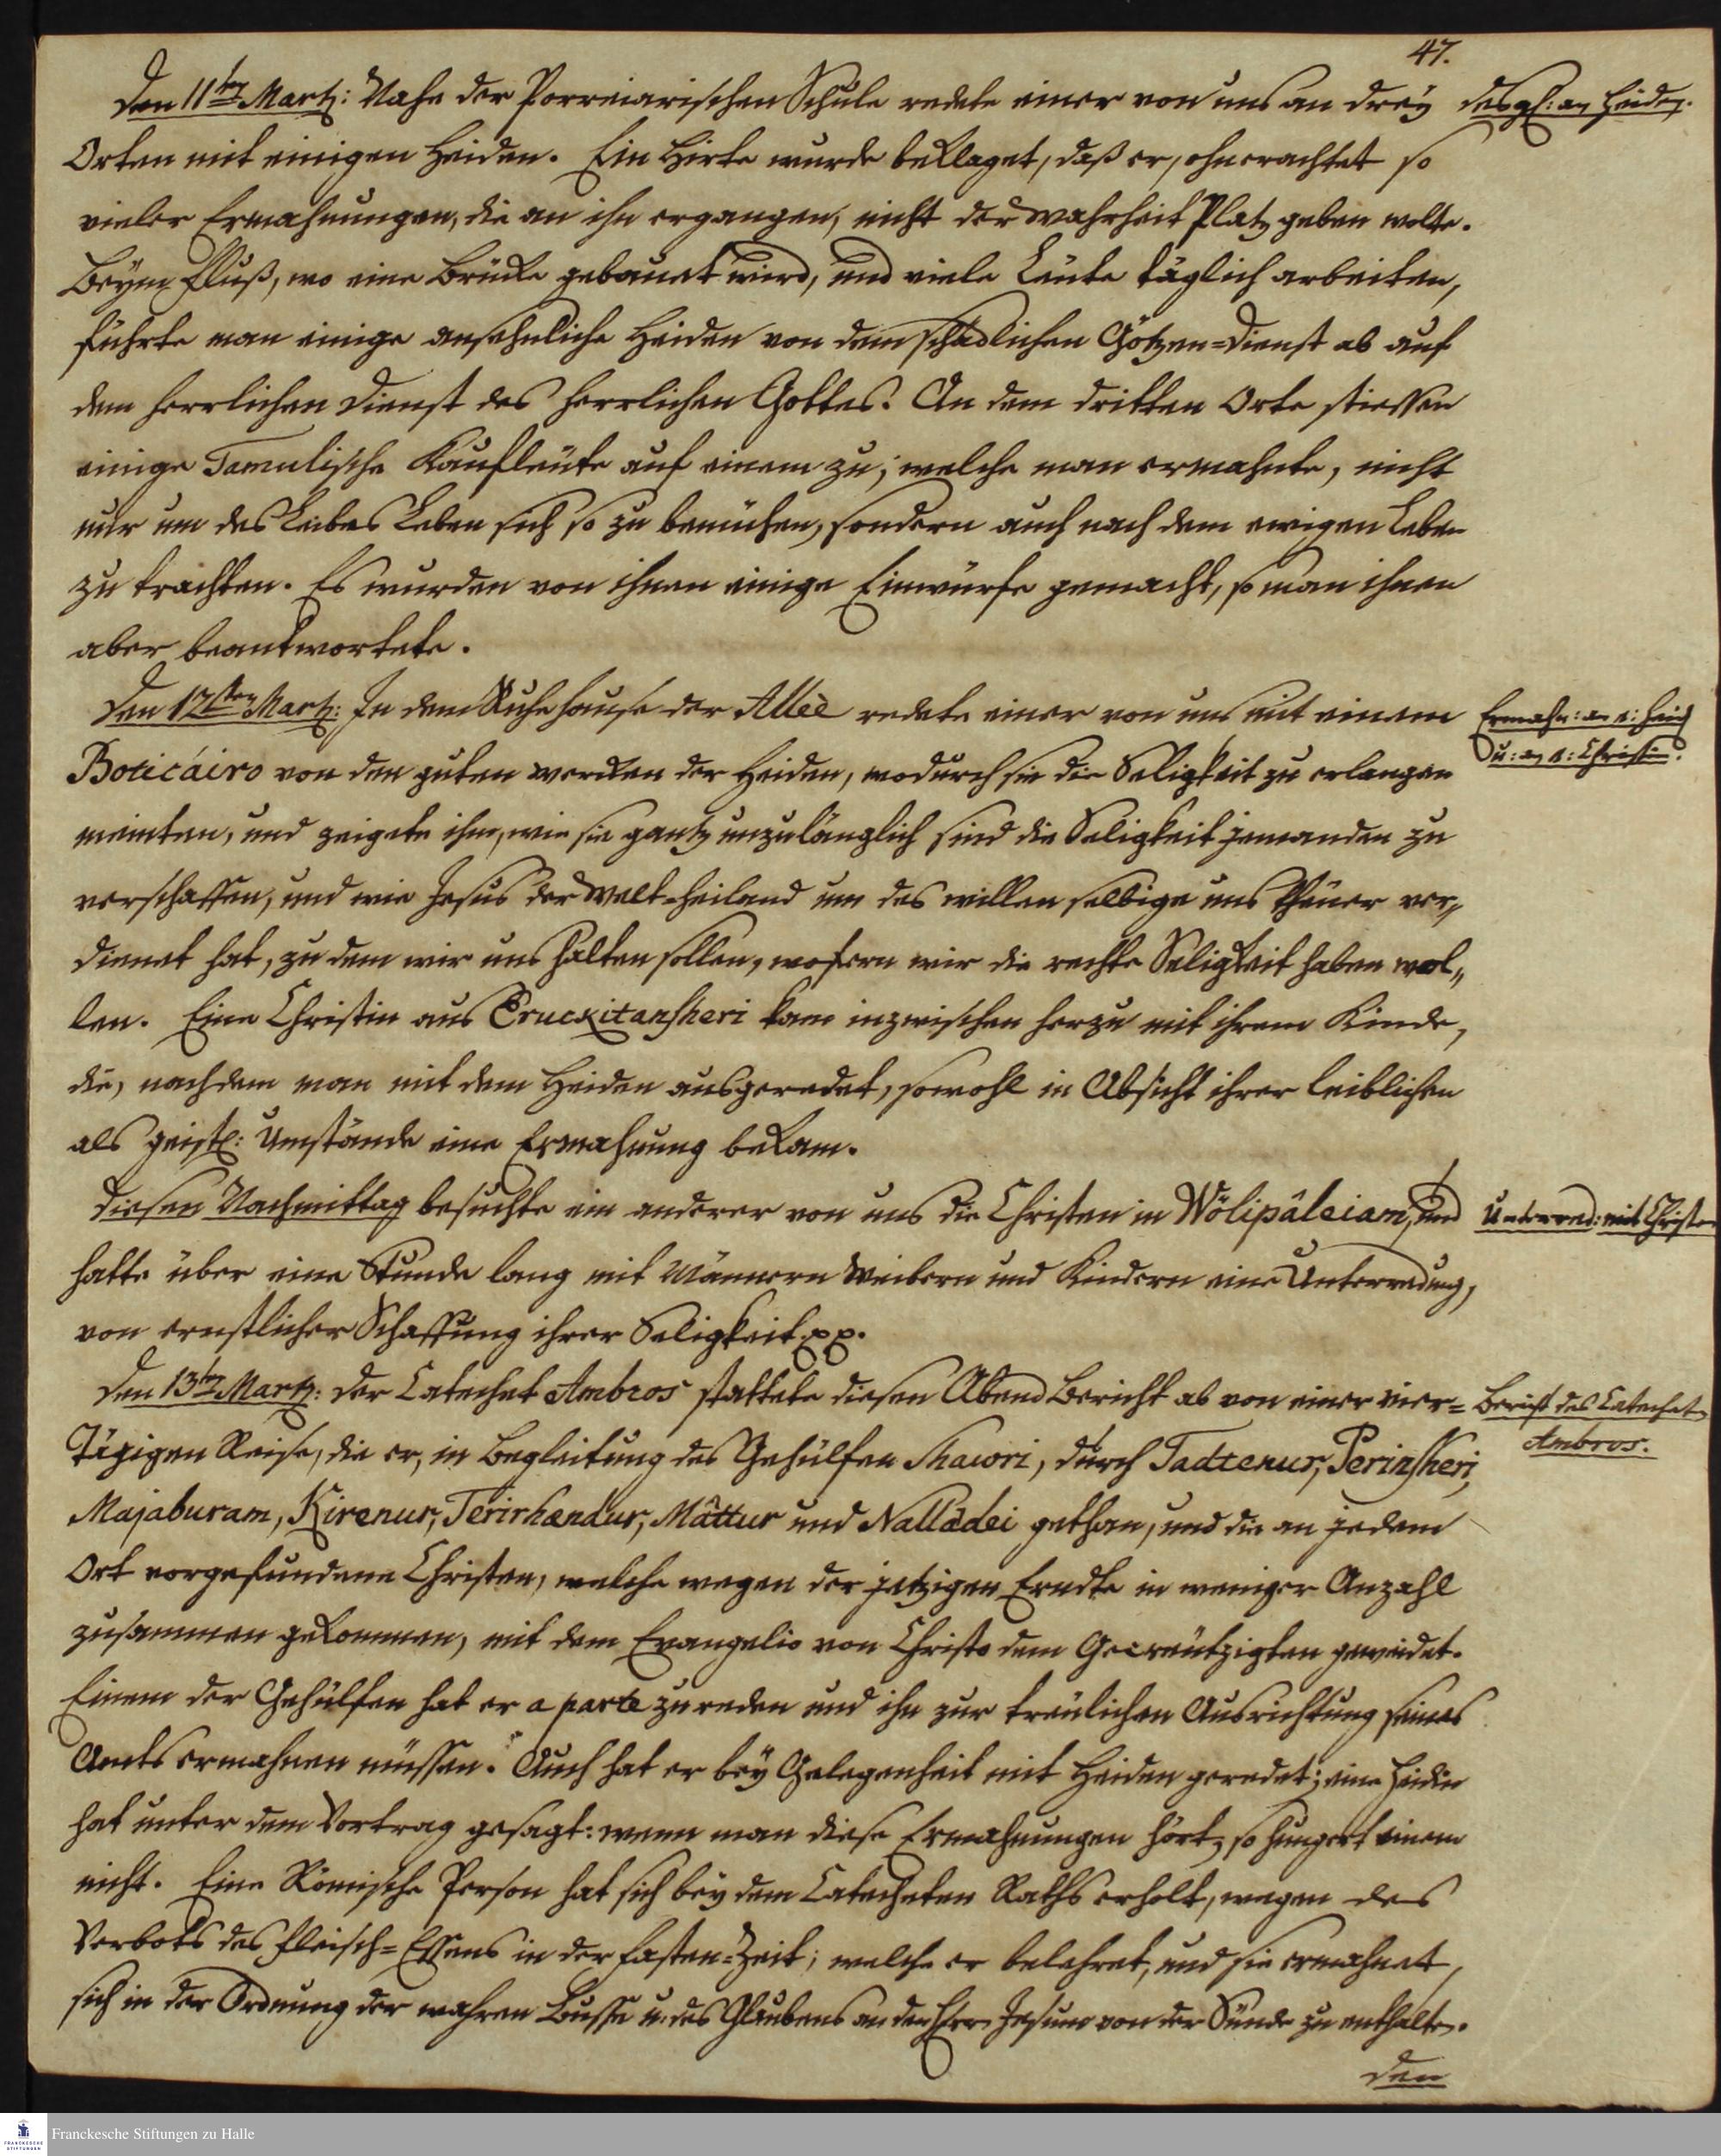 47.
Den 11ten Martz: Nahe der Porreiarischen Schule redete einer von uns an drey
desgl: an Heiden.
Orten mit einigen Heiden. Ein Hirte wurde beklaget, daß er, ohnerachtet so
vieler Ermahnungen, die an ihn ergangen, nicht der Wahrheit Platz geben wolte.
Beym Fluß, wo eine Brücke gebauet wird, und viele Leute täglich arbeiten,
führte man einige ansehnliche Heiden von dem schädlichen Götzen-Dienst ab auf
dem herrlichen Dienst des herrlichen Gottes. An dem dritten Orte stiessen
einige Tamulische Kaufleute auf einem zu; welche man ermahnte, nicht
nur um des Leibes Leben sich so zu bemühen, sondern auch nach dem ewigen Leben
zu trachten. Es wurden von ihnen einige Einwürfe gemacht, so man ihnen
aber beantwortete.
Den 12ten Martz: In dem Ruhehause der Allée redete einer von uns mit einem
Ermahn: an e: Heid
u: an e: Christin.
Boticáiro von den guten Wercken der Heiden, wodurch sie die Seligkeit zu erlangen
meinten, und zeigete ihm, wie sie gantz unzulänglich sind die Seligkeit jemanden zu
verschaffen, und wie Jesus der Welt-Heiland um des willen selbige uns theuer ver„
dienet hat, zu dem wir uns halten sollen, wofern wir die rechte Seligkeit haben wol„
len. Eine Christin aus Eruckitansheri kam inzwischen herzu mit ihrem Kinde,
die, nachdem man mit dem Heiden ausgeredet, sowohl in Absicht ihrer leiblichen
als geistl: Umstände eine Ermahnung bekam.
Diesen Nachmittag besuchte ein anderer von uns die Christen in Wölipâleiam, und
Unterred: mit Christen
hatte über eine Stunde lang mit Männern Weibern und Kindern eine Unterredung,
von ernstlicher Schaffung ihrer Seligkeit pp.
Den 13ten Martz: Der Catechet Ambros stattete diesen Abend Bericht ab von einer vier-
Bericht des Catechet
Ambros.
Tägigen Reise, die er, in Begleitung des Gehülfen Shawri, durch Tadtenur, Perinsheri,
Majaburam, Kirenur, Terirhandur, Mâttur und Nallâdei gethan, und die an jedem
Ort vorgefundene Christen, welche wegen der jetzigen Erndte in weniger Anzahl
zusammen gekommen, mit dem Evangelio von Christo dem Gecreutzigten geweidet.
Einem der Gehülfen hat er a parte zureden und ihn zur treulichen Ausrichtung seines
Amts ermahnen müssen. Auch hat er bey Gelegenheit mit Heiden geredet; eine Heidin
hat unter dem Vortrag gesagt: wenn man diese Ermahnungen hört, so hungert einem
nicht. Eine Römische Person hat sich bey dem Catecheten Raths erholt, wegen des
Verbots des Fleisch-Essens in der Fasten-Zeit; welche er belehret, und sie ermahnet,
sich in der Ordnung der wahren Busse u. des Glaubens an den Herrn Jesum von der Sünde zu enthalten.
den
Franckesche Stiftungen zu Halle